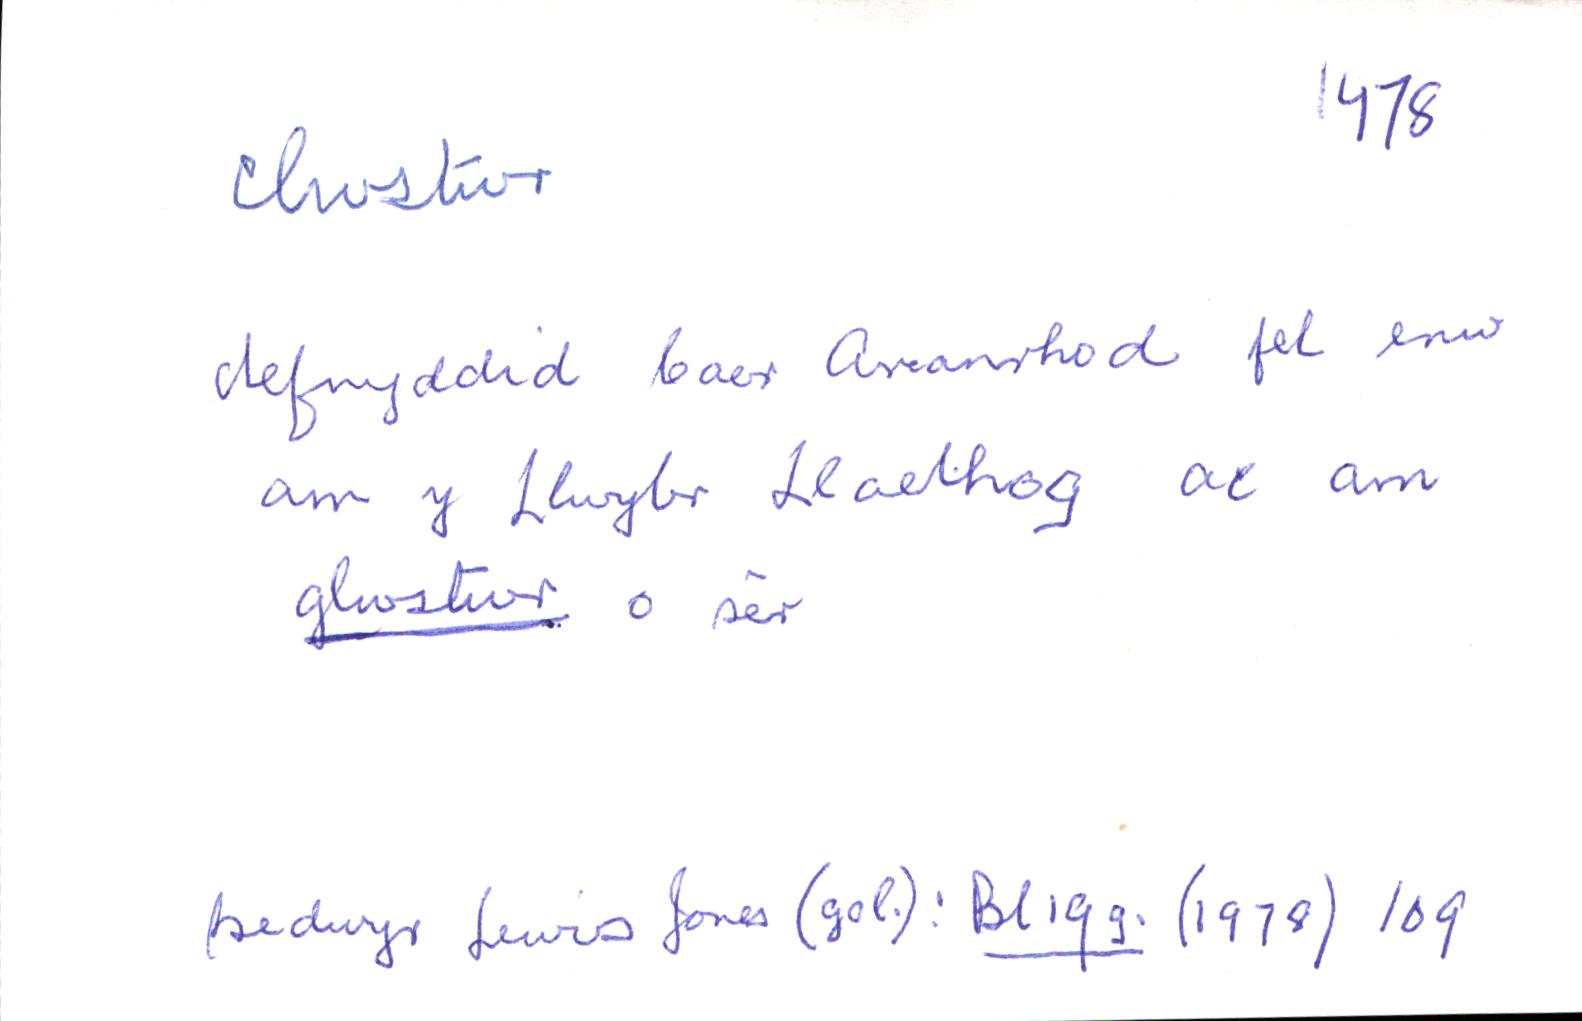 1978
clwstwr
defnyddid Caer Arianrhod fel enw
am y Llwybr Llaethog ac am
glwstwr o sêr
Bedwyr Lewis Jones (gol.): Bl 19g. (1978) 109